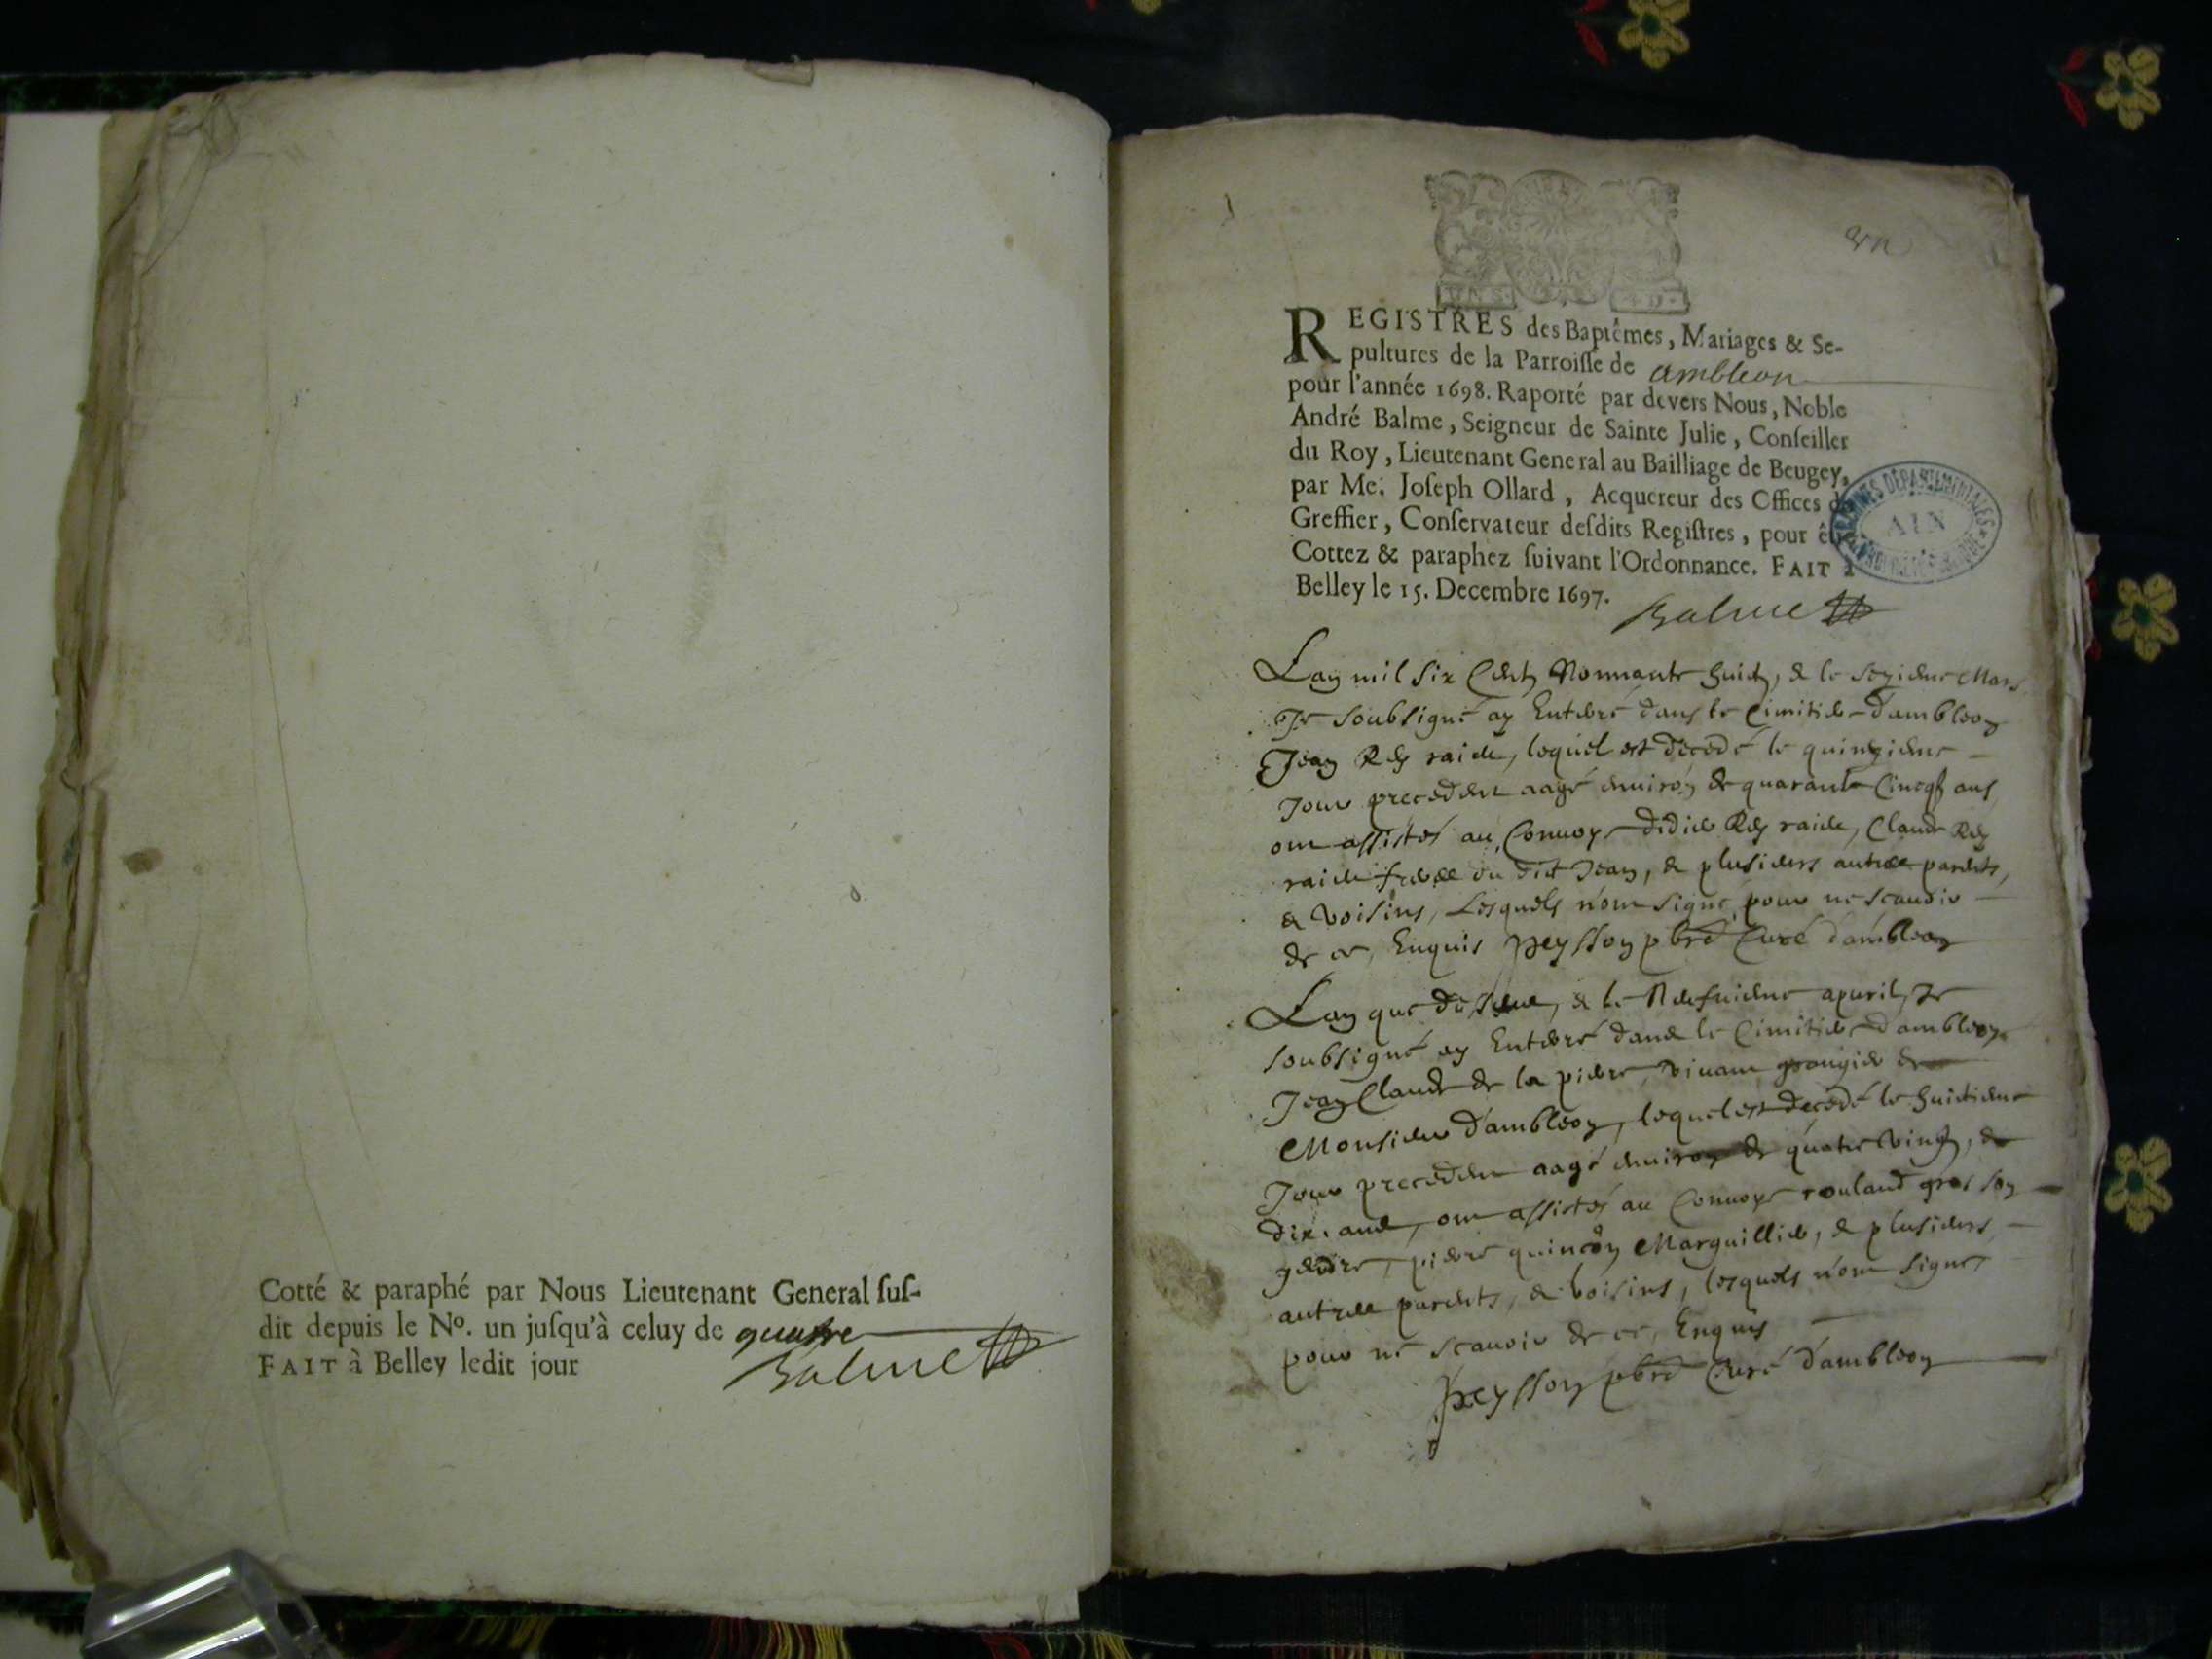 Cotté & paraphé par Nous Lieutenant General ſuſ-
dit depuis le No. un juſqu'à celuy de quatre
FAIT à Belley ledit jour Balme
un
REGISTRES des Baptêmes, Mariages & Se-
pultures de la Parroiſſe de ambleon
pour l'année 1698. Raporté par devers Nous, Noble
André Balme, Seigneur de Sainte Julie, Conſeiller
du Roy, Lieutenant General au Bailliage de Beugey,
par Me. Joſeph Ollard, Acquereur des Offices d
Greffier, Conſervateur deſdits Regiſtres, pour ê
Cottez & paraphez ſuivant l'Ordonnance. FAIT à
Belley le 15. Decembre 1697.
Balme
ARCHIVES DÉPARTEMENTALES
AIN
Lan mil six Cent Nonnante huict, & le seziene Mars
Je soubsigné ay Enterré dans le Cimitier d'ambleon
Jean Rey raide, lequel est decedé le quinziene
Jour precedent aagé environ de quarante Cincq ans
ont assistés au Convoye didier Rey raide, Claude Rey
raide freres du dit Jean, & plusieurs autres parents,
& voisins, Lesquels n'ont signé pour ne scavoir
de ce, Enquis peysson pbre Curé d'ambleon
Lan que dessus, & le Neufviene apvril, Je
soubsigné ay Enterré dans le Cimitier d'ambleon
Jean Claude de la pierre, vivant grangier de
Monsieur d'ambleon, lequel est decedé le huictiene
Jour precedent aagé environ de quatre vingt, &
dix. ans, ont assistés au Convoye rouland gros son
gendre, pierre quincon Marguillier, & plusieurs
autres parents, & voisins, lesquels n'ont signés
pour ne scavoir de ce, Enquis
peysson pbre Curé d'ambleon